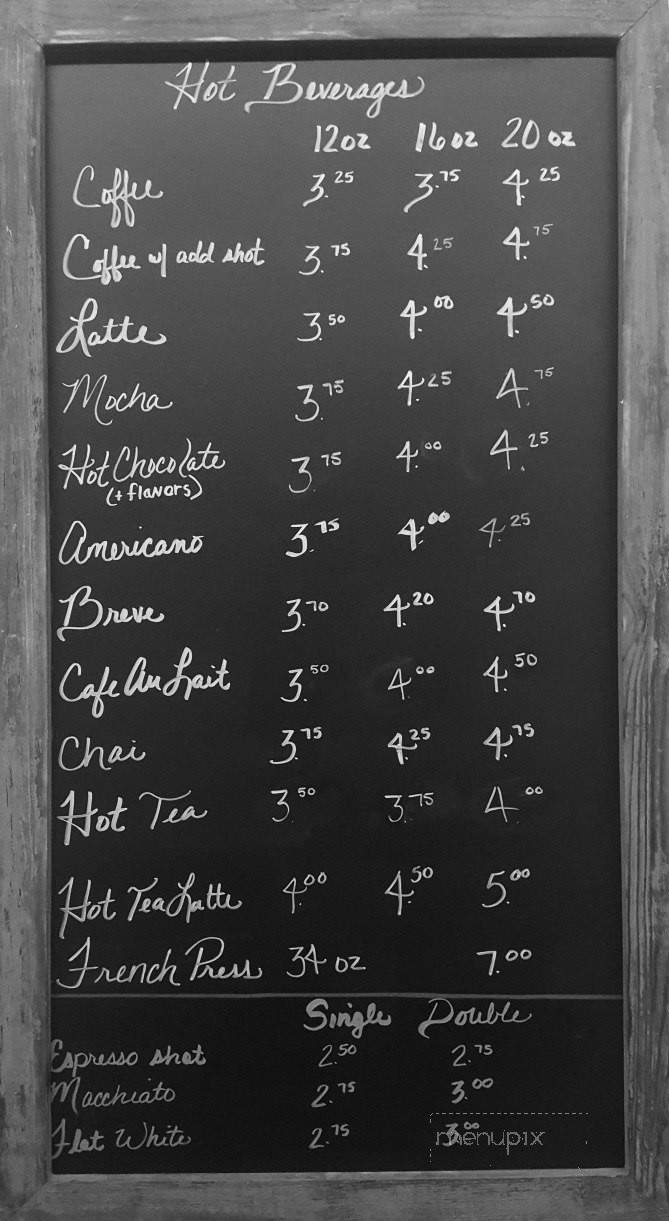 Hot Beverages
12oz 16oz 20oz
Coffee 3.25 3.75 4.25
Coffee w/ add shot 3.75 4.25 4.75
Latte 3.50 4.00 4.50
Mocha 3.75 4.25 4.75
Hot Chocolate 3.75 4.00 4.25
(+ flavors)
Americano 3.75 4.00 4.25
Breve 3.70 4.20 4.70
Cafe Au Lait 3.50 4.00 4.50
Chai 3.75 4.25 4.75
Hot Tea 3.50 3.75 4.00
Hot Tea Latte 4.00 4.50 5.00
French Press 34 oz 7.00
Single Double
Espresso shot 2.50 2.75
Macchiato 2.75 3.00
Flat White 2.75 3.00
menupix